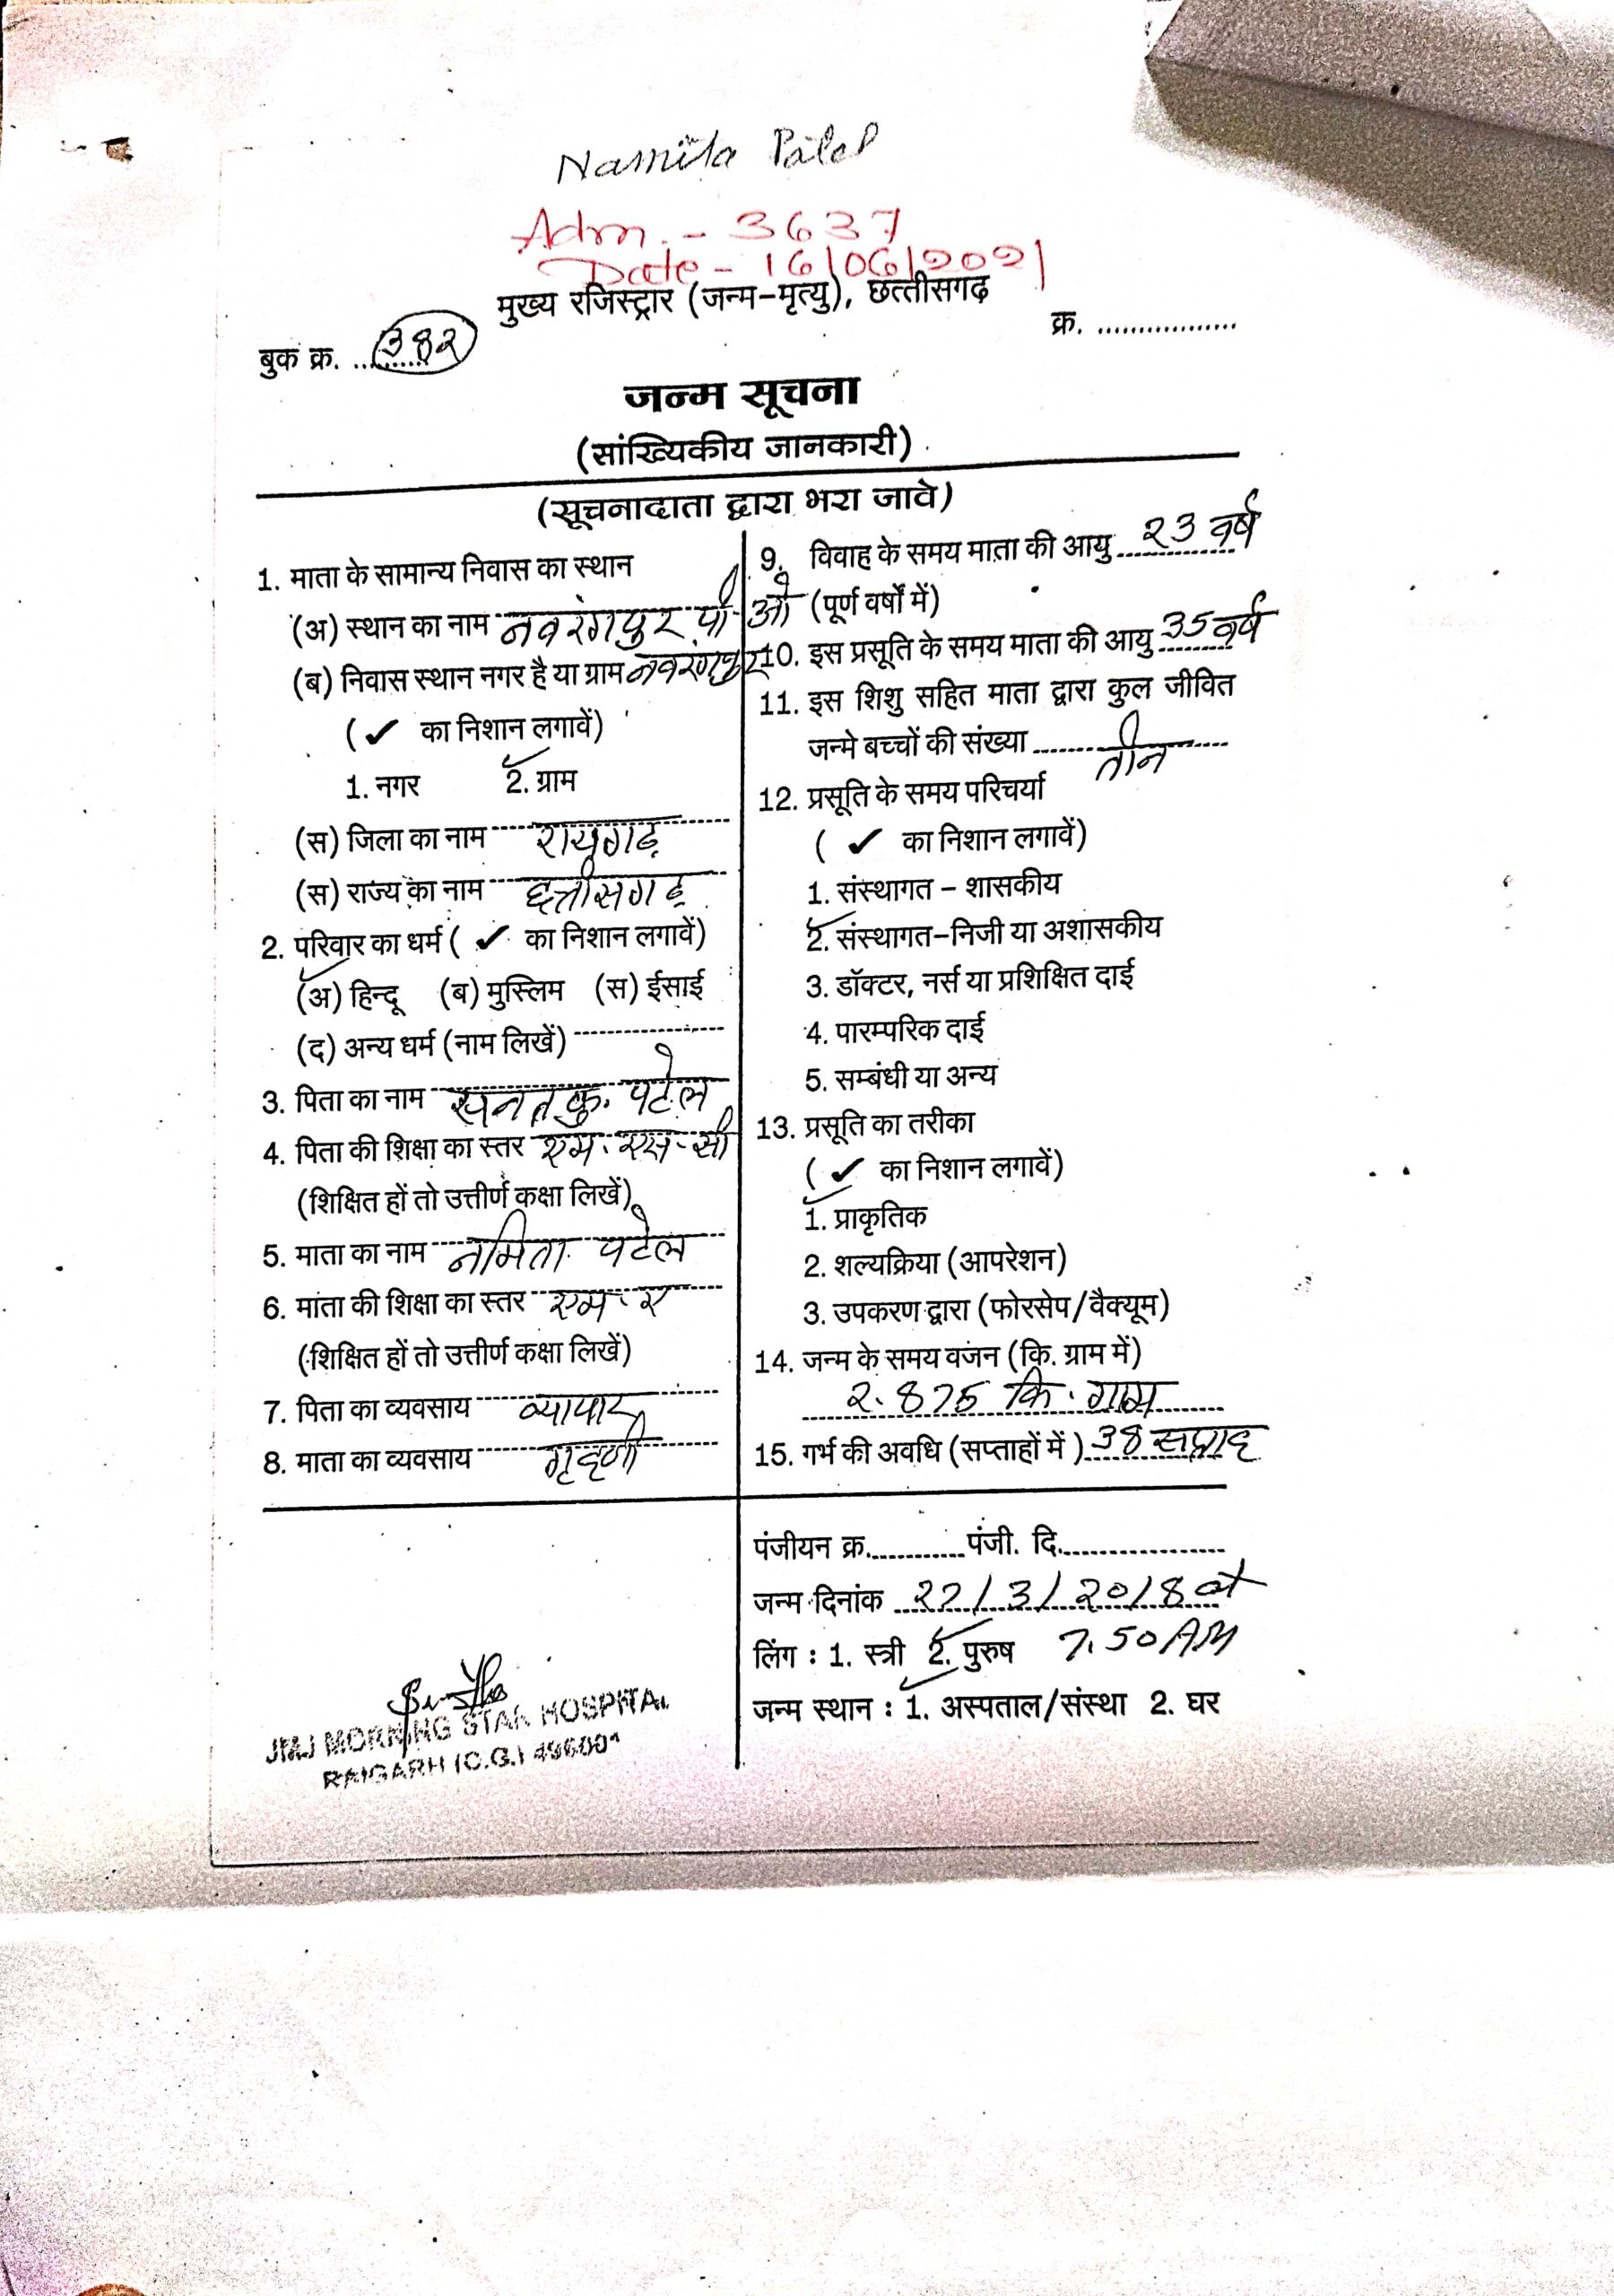 Namita Patel
Adm. - 3637
Date - 16/06/2021
मुख्य रजिस्ट्रार (जन्म-मृत्यु), छत्तीसगढ़
बुक क्र. .......... 382
क्र. .................
जन्म सूचना
(सांख्यिकीय जानकारी)
(सूचनादाता द्वारा भरा जावे)
1. माता के सामान्य निवास का स्थान
(अ) स्थान का नाम नवरंगपुर पी ओ
(ब) निवास स्थान नगर है या ग्राम नवरंगपुर
(✓ का निशान लगावें)
1. नगर 2. ग्राम
(स) जिला का नाम रायगढ़
(स) राज्य का नाम छत्तीसगढ़
2. परिवार का धर्म (✓ का निशान लगावें)
(अ) हिन्दू (ब) मुस्लिम (स) ईसाई
(द) अन्य धर्म (नाम लिखें)
3. पिता का नाम सनत कु. पटेल
4. पिता की शिक्षा का स्तर एम.एस-सी
(शिक्षित हों तो उत्तीर्ण कक्षा लिखें)
5. माता का नाम नमिता पटेल
6. माता की शिक्षा का स्तर एम-ए
(शिक्षित हों तो उत्तीर्ण कक्षा लिखें)
7. पिता का व्यवसाय व्यापार
8. माता का व्यवसाय गृहणी
9. विवाह के समय माता की आयु 23 वर्ष
(पूर्ण वर्षों में)
10. इस प्रसूति के समय माता की आयु 35 वर्ष
11. इस शिशु सहित माता द्वारा कुल जीवित
जन्मे बच्चों की संख्या तीन
12. प्रसूति के समय परिचर्या
(✓ का निशान लगावें)
1. संस्थागत – शासकीय
2. संस्थागत-निजी या अशासकीय
3. डॉक्टर, नर्स या प्रशिक्षित दाई
4. पारम्परिक दाई
5. सम्बंधी या अन्य
13. प्रसूति का तरीका
(✓ का निशान लगावें)
1. प्राकृतिक
2. शल्यक्रिया (आपरेशन)
3. उपकरण द्वारा (फोरसेप/वैक्यूम)
14. जन्म के समय वजन (कि. ग्राम में)
2.875 कि. ग्राम
15. गर्भ की अवधि (सप्ताहों में) 38 सप्ताह
पंजीयन क्र............. पंजी. दि....................
जन्म दिनांक 22/3/2018 at
लिंग : 1. स्त्री 2. पुरुष 7.50 AM
जन्म स्थान : 1. अस्पताल/संस्था 2. घर
JMJ MORNING STAR HOSPITAL
RAIGARH (C.G.) 496001